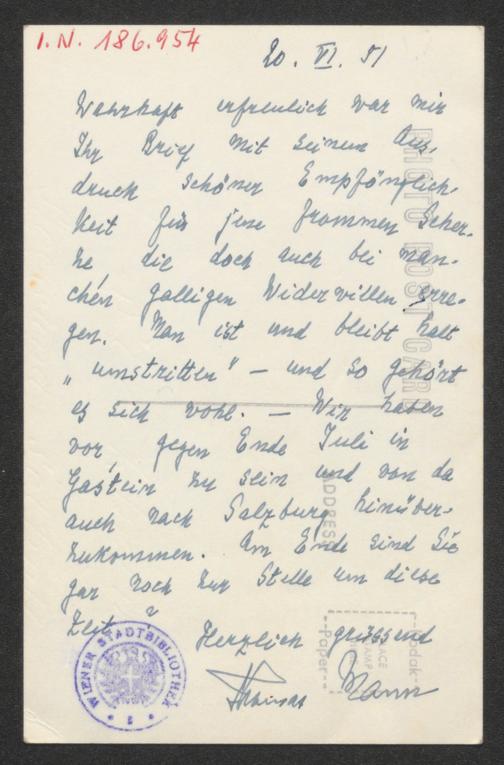 I.N. 186.954
20. VI. 51
Wahrhaft erfreulich war mir
Ihr Brief mit seinem Aus-
druck schöner Empfänglich-
keit für jene frommen Scher-
ze die doch auch bei man-
chen galligen Widerwillen erre-
gen. Man ist und bleibt halt
„umstritten" – und so gehört
es sich wohl. – Wir haben
vor, gegen Ende Juli in
Gastein zu sein und von da
auch nach Salzburg hinüber-
zukommen. Am Ende sind Sie
gar noch zur Stelle um diese
Zeit?
Herzlich grüssend
Thomas Mann
PHOTO POST CARD
ADDRESS
Kodak
PLACE
STAMP
HERE
Paper
WIENER STADTBIBLIOTHEK